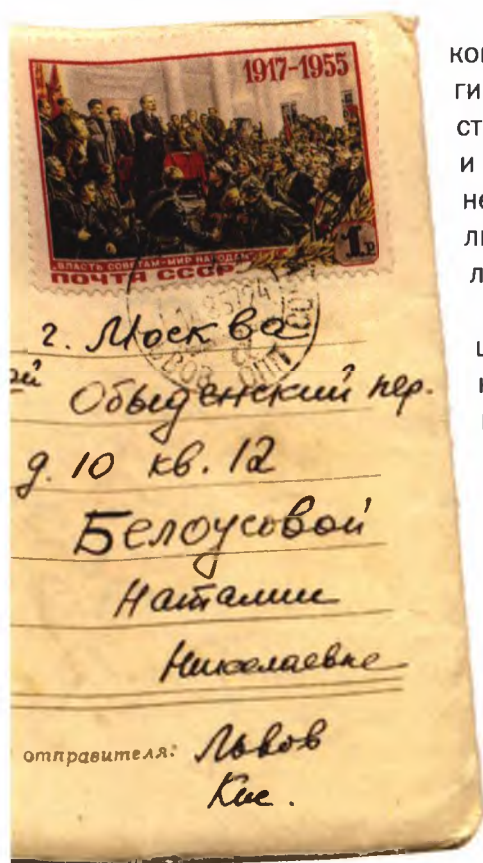 1917-1955
„ВЛАСТЬ СОВЕТАМ-МИР НАРОДАМ"
1 р
ПОЧТА СССР
г. Москва
ой Обыденский пер.
д. 10 кв. 12
Белоусовой
Наталии
Николаевне
отправителя: Львов
Кис.
ги
ст
и
не